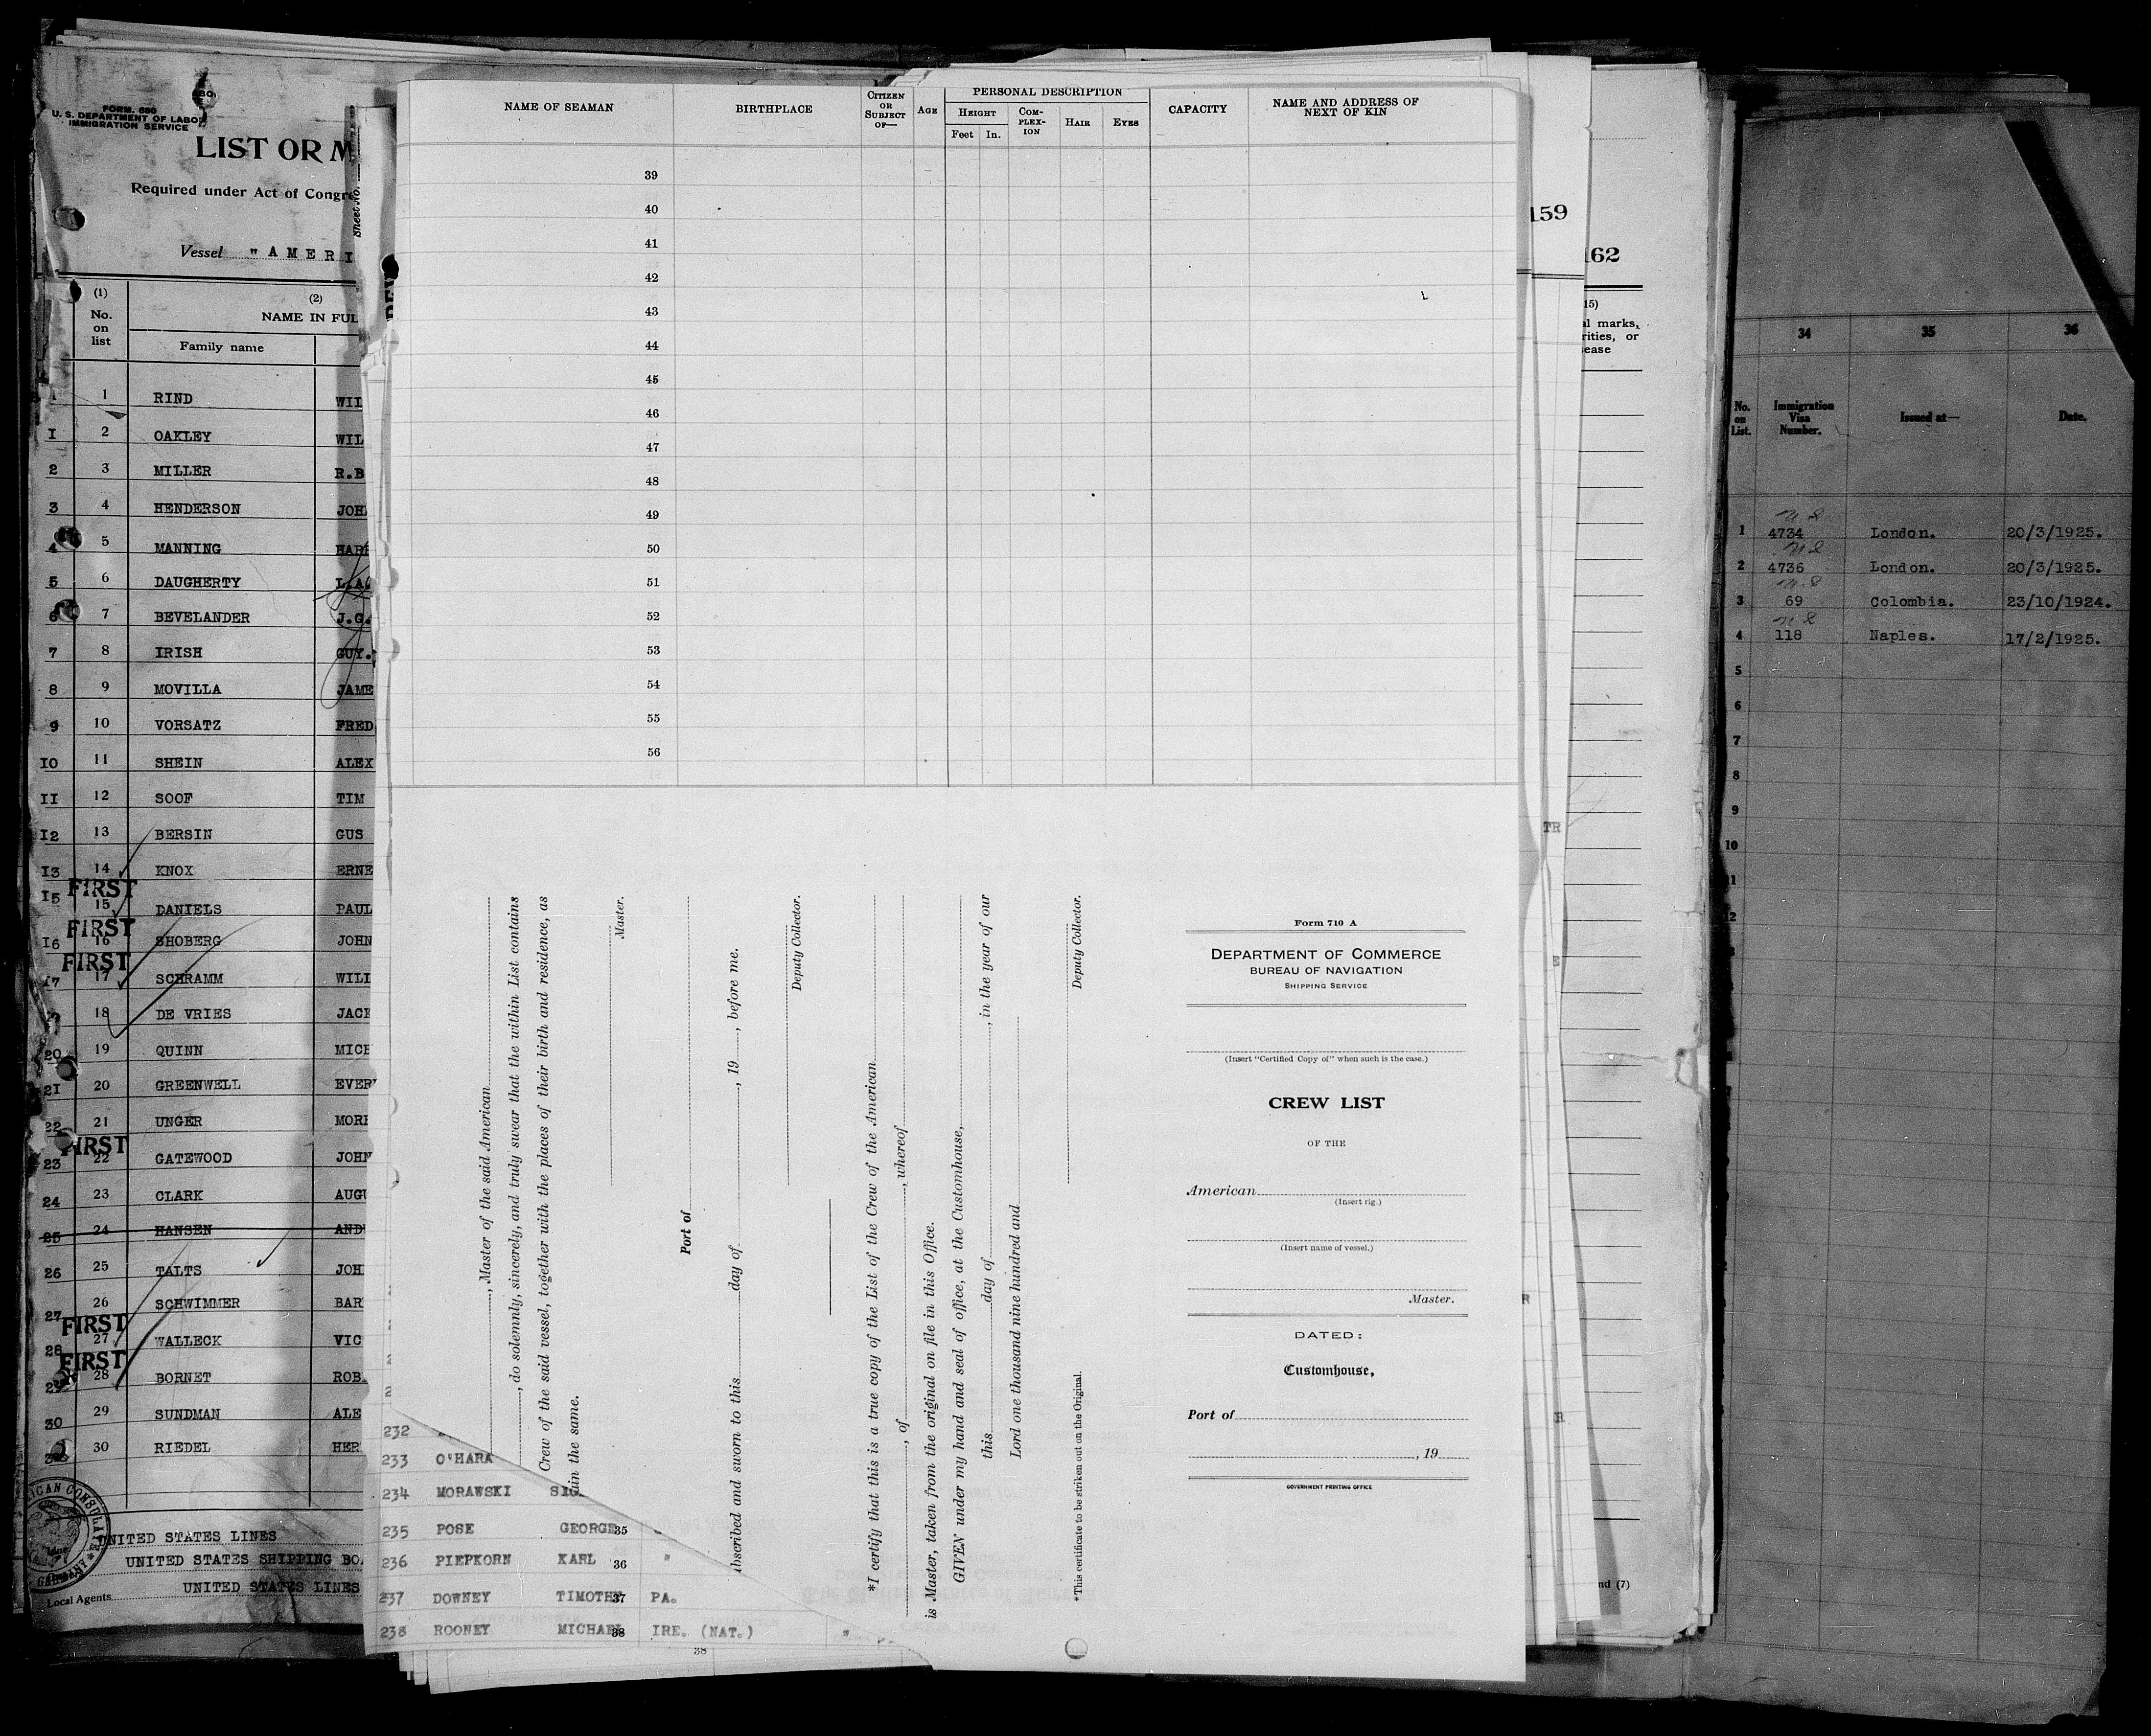 FORM 680
U. S. DEPARTMENT OF LABOR
IMMIGRATION SERVICE
LIST OR M
Required under Act of Congre
Vessel "AMERI
(1) (2)
No. on list NAME IN FUL
Family name
1 RIND WIL
I 2 OAKLEY WIL
2 3 MILLER R.B
3 4 HENDERSON JOH
4 5 MANNING HAR
5 6 DAUGHERTY L.A.
6 7 BEVELANDER J.G.
7 8 IRISH GUY.
8 9 MOVILLA JAME
9 10 VORSATZ FRED
I0 11 SHEIN ALEX
II 12 SOOF TIM
I2 13 BERSIN GUS
I3 14 KNOX ERNE
FIRST
I5 15 DANIELS PAUL
FIRST
I6 16 SHOBERG JOHN
FIRST
I7 17 SCHRAMM WILI
18 DE VRIES JACK
20 19 QUINN MICH
2I 20 GREENWELL EVER
22 21 UNGER MORR
FIRST
23 22 GATEWOOD JOHN
24 23 CLARK AUGU
25 24 HANSEN AND
26 25 TALTS JOH
27 26 SCHWIMMER BAR
FIRST
28 27 WALLECK VIC
FIRST
29 28 BORNET ROB
30 29 SUNDMAN ALE
30 RIEDEL HER
ICAN CONSULATE
GERMANY
UNITED STATES LINES
UNITED STATES SHIPPING BO
Local Agents UNITED STATES LINES
Sheet No.
NAME OF SEAMAN
BIRTHPLACE
CITIZEN OR SUBJECT OF—
AGE
PERSONAL DESCRIPTION
HEIGHT
Feet In.
COM-PLEX-ION
HAIR
EYES
CAPACITY
NAME AND ADDRESS OF NEXT OF KIN
39
40
41
42
43
44
45
46
47
48
49
50
51
52
53
54
55
56
, Master of the said American
, do solemnly, sincerely, and truly swear that the within List contains
Crew of the said vessel, together with the places of their birth and residence, as
ain the same.
Master.
Port of
bscribed and sworn to this day of , 19 , before me.
Deputy Collector.
*I certify that this is a true copy of the List of the Crew of the American
, of , whereof
is Master, taken from the original on file in this Office.
GIVEN under my hand and seal of office, at the Customhouse,
this day of , in the year of our
Lord one thousand nine hundred and
Deputy Collector.
*This certificate to be striken out on the Original.
Form 710 A
DEPARTMENT OF COMMERCE
BUREAU OF NAVIGATION
SHIPPING SERVICE
(Insert "Certified Copy of" when such is the case.)
CREW LIST
OF THE
American
(Insert rig.)
(Insert name of vessel.)
Master.
DATED:
Customhouse,
Port of
, 19
GOVERNMENT PRINTING OFFICE
232
233 O'HARA
234 MORAWSKI SIG
235 POSE GEORGE 35
236 PIEPKORN KARL 36 "
237 DOWNEY TIMOTHY 37 PA.
238 ROONEY MICHAEL 38 IRE. (NAT.) "
38
159
162
15)
al marks,
rities, or
sease
TR
E
R
R
nd (7)
34 35 36
No. on List. Immigration Visa Number. Issued at— Date.
1 4734 London. 20/3/1925.
2 4736 London. 20/3/1925.
3 69 Colombia. 23/10/1924.
4 118 Naples. 17/2/1925.
5
6
7
8
9
10
11
12